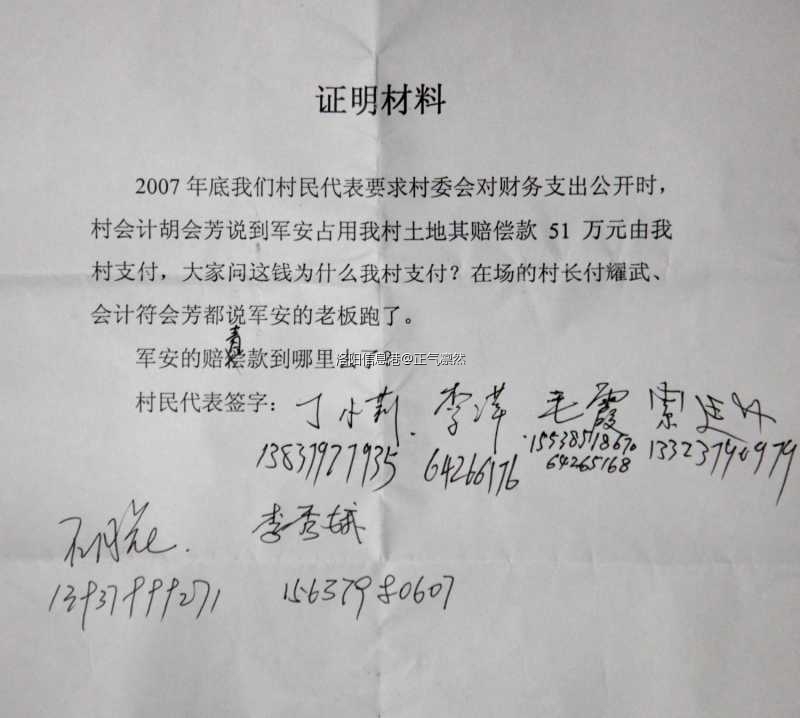 证明材料
2007 年底我们村民代表要求村委会对财务支出公开时，
村会计胡会芳说到军安占用我村土地其赔偿款 51 万元由我
村支付，大家问这钱为什么我村支付？在场的村长付耀武、
会计符会芳都说军安的老板跑了。
军安的赔款到哪里去了？
洛阳信息港@正气凛然
村民代表签字：丁小莉 李萍 毛霞
13837977935 64266176 15538518670
64265168
李秀娥
13937999271 15637980607